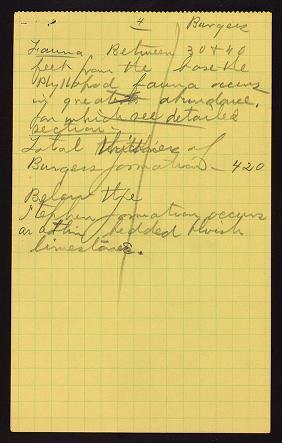 4 Burgess
Fauna Between 30 & 40
feet from the base the
Phyllopod fauna occurs
in great abundance.
for which see detailed
section.
Total thickness of
Burgess formation - 420
Below the
Stephen formation occurs
as a thin bedded bluish
limestone.